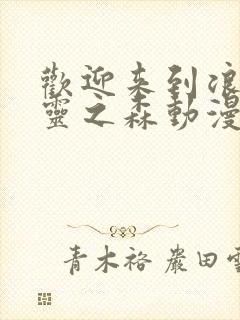 歡迎来到浪
靈之森動漫
青木裕 巖田雪